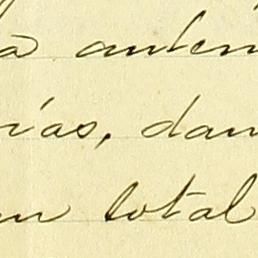 a anteri
rías, dan
un total